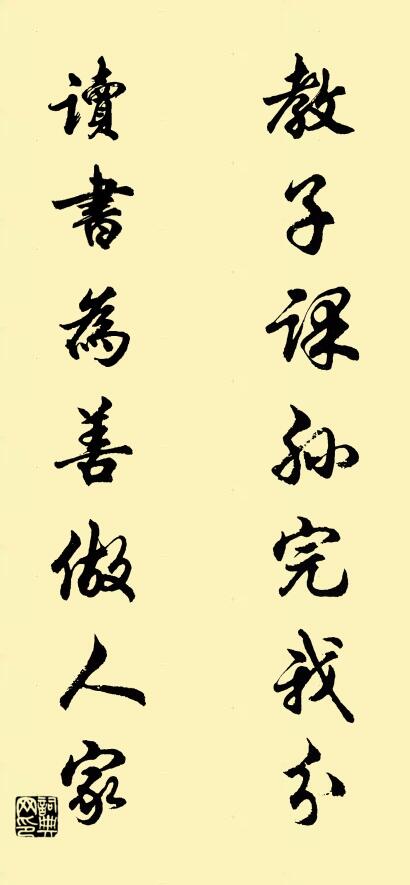 教子課孙完我分
讀書為善做人家
詞典
网印